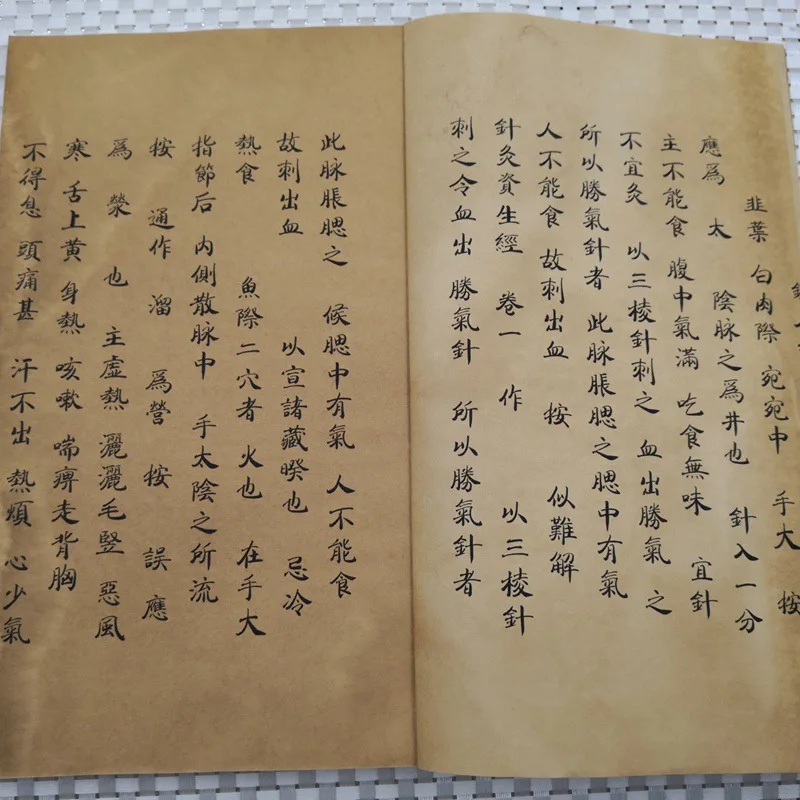 韭葉 白肉際 宛宛中 手大 按
應為 太 陰脉之為井也 針入一分
主不能食 腹中氣滿 吃食無味 宜針
不宜灸 以三棱針刺之 血出勝氣 之
所以勝氣針者 此脉脹腮之腮中有氣
人不能食 故刺出血 按 似難解
針灸資生經 卷一 作 以三棱針
刺之令血出 勝氣針 所以勝氣針者
此脉脹腮之 候腮中有氣 人不能食
故刺出血 以宣諸藏暌也 忌冷
熱食 魚際二穴者 火也 在手大
指節后 內側散脉中 手太陰之所流
按 通作 溜 為營 按 誤應
為 滎 也 主虛熱 灑灑毛豎 惡風
寒 舌上黄 身熱 咳嗽 喘痹走背胸
不得息 頭痛甚 汗不出 熱煩 心少氣